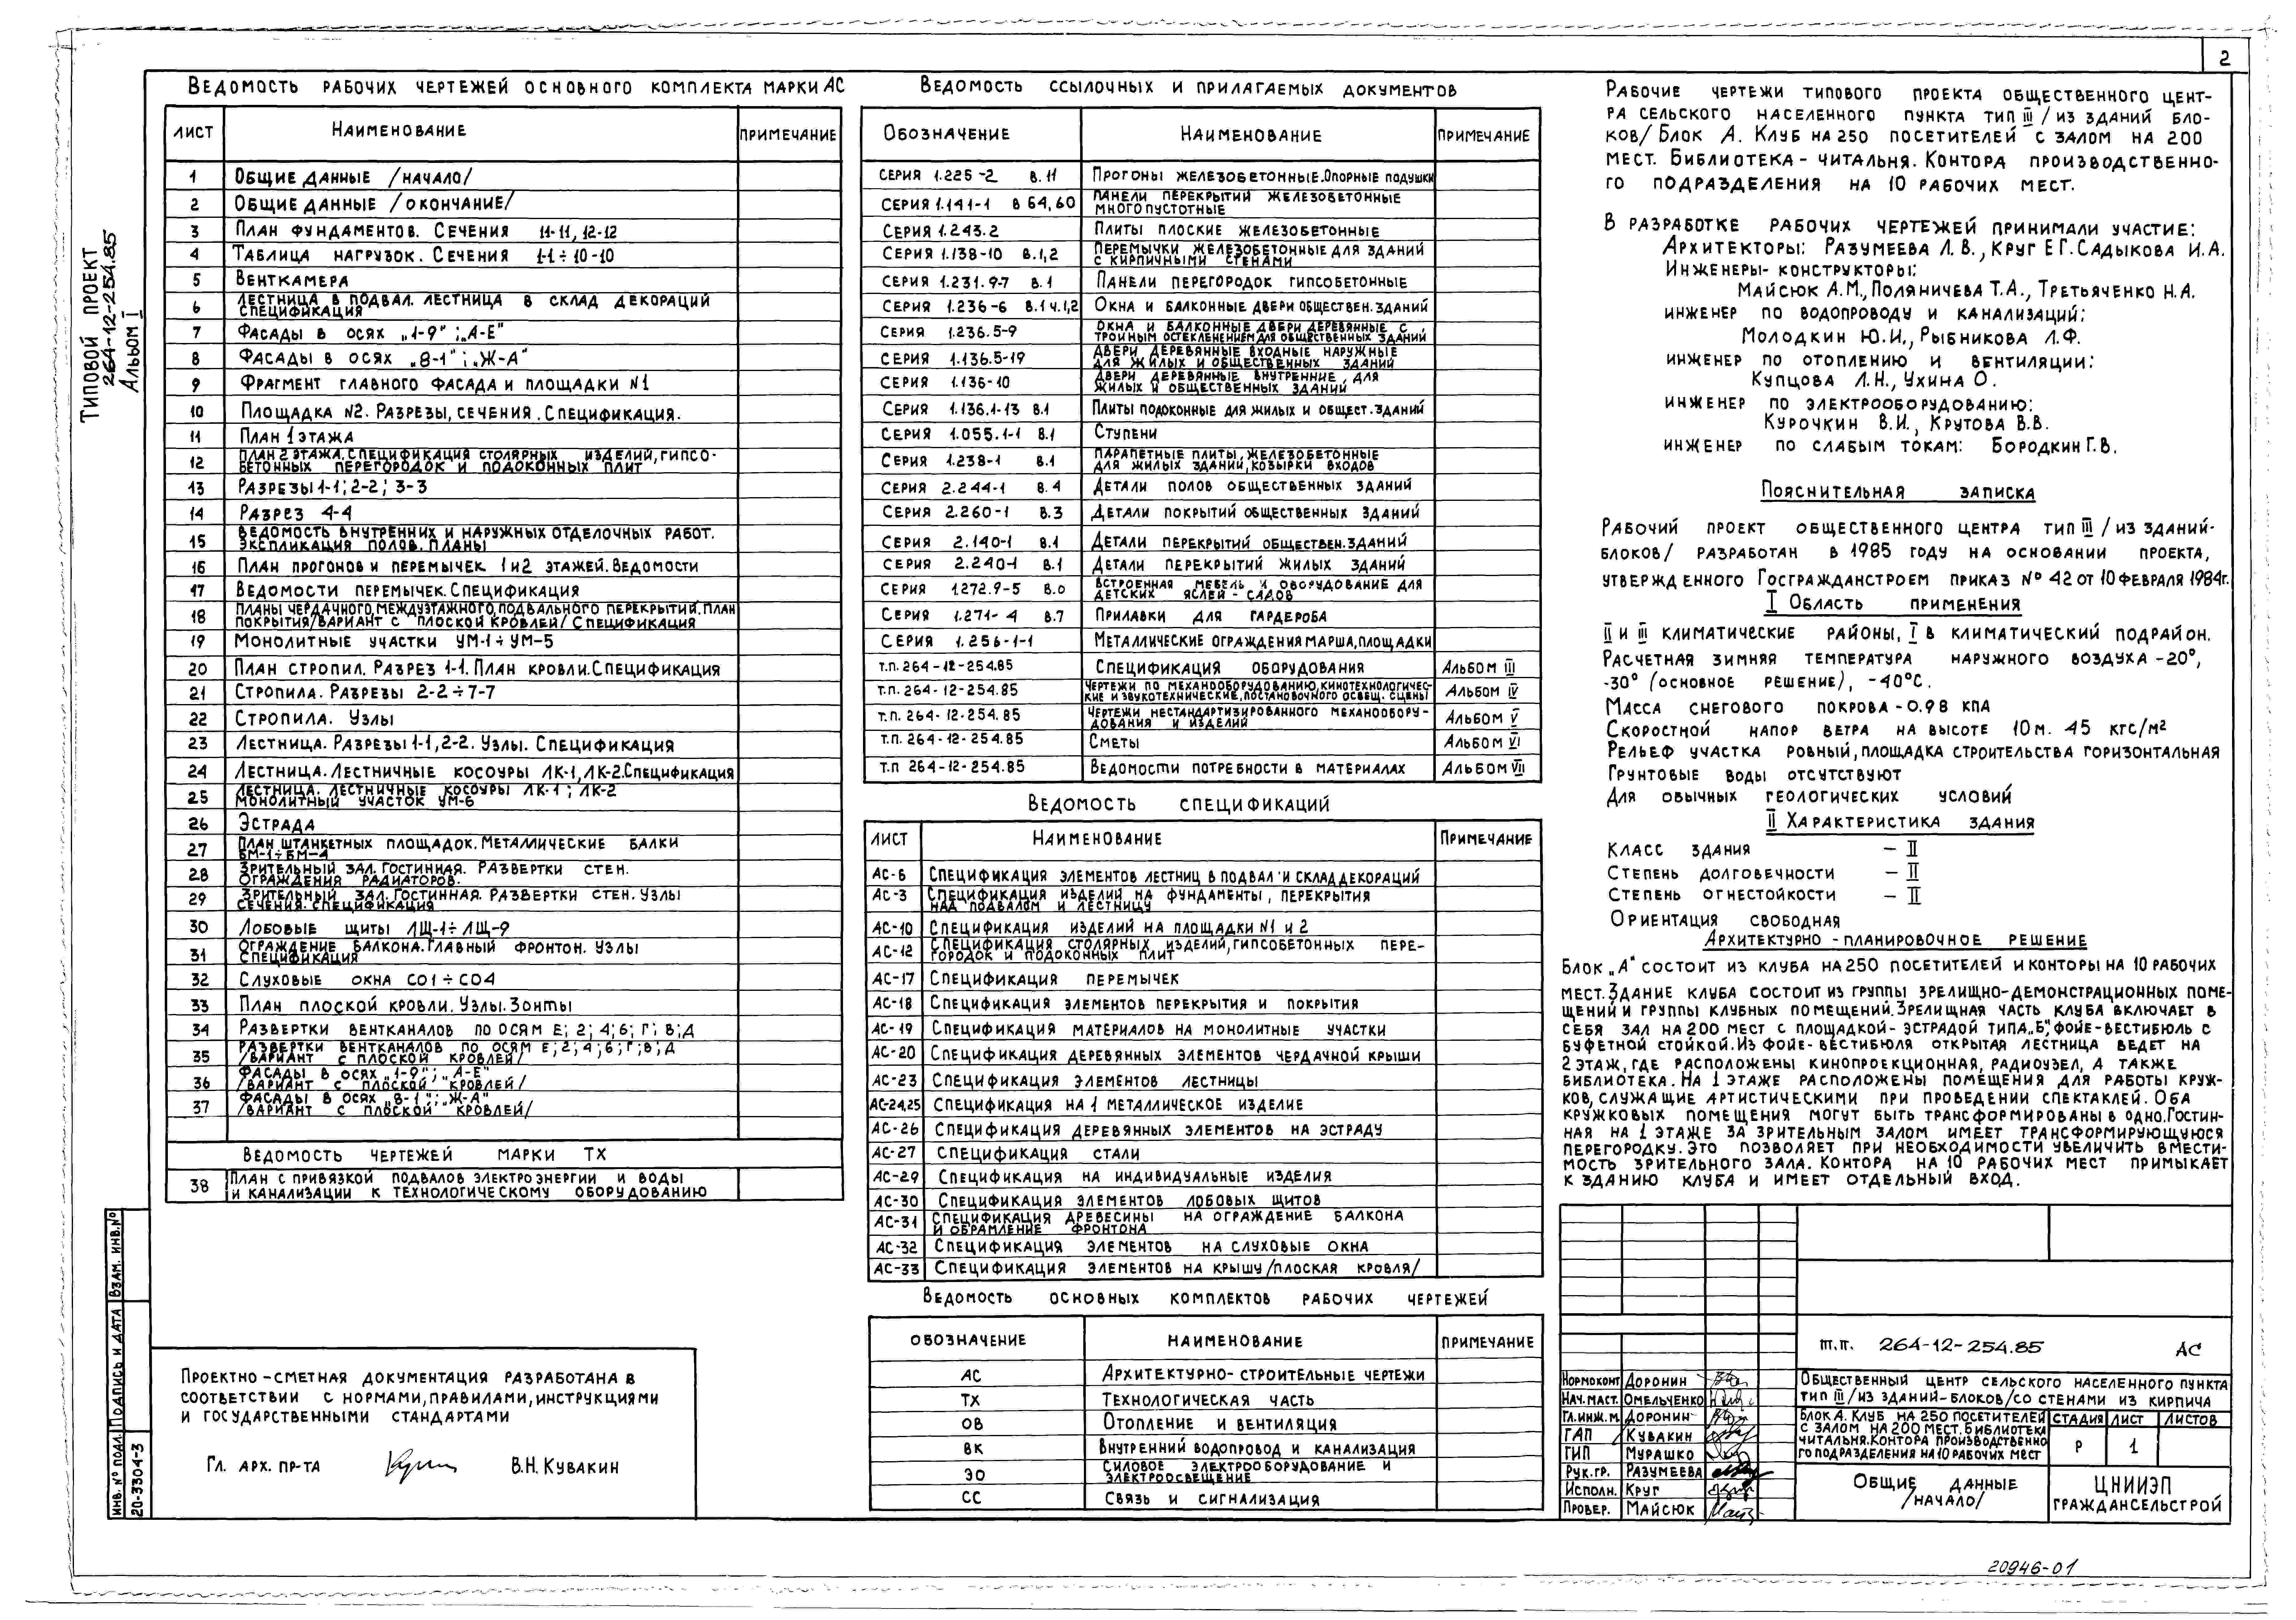 2
Типовой проект
264-12-254.85
Альбом I
Ведомость рабочих чертежей основного комплекта марки АС
Лист Наименование Примечание
1 Общие данные /начало/
2 Общие данные /окончание/
3 План фундаментов. Сечения 11-11, 12-12
4 Таблица нагрузок. Сечения 1-1÷10-10
5 Венткамера
6 Лестница в подвал. Лестница в склад декораций
Спецификация
7 Фасады в осях „1-9"; „А-Е"
8 Фасады в осях „8-1"; „Ж-А"
9 Фрагмент главного фасада и площадки №1
10 Площадка №2. Разрезы, сечения. Спецификация.
11 План 1 этажа
12 План 2 этажа. Спецификация столярных изделий, гипсо-
бетонных перегородок и подоконных плит
13 Разрезы 1-1; 2-2; 3-3
14 Разрез 4-4
15 Ведомость внутренних и наружных отделочных работ.
Экспликация полов. Планы
16 План прогонов и перемычек 1 и 2 этажей. Ведомости
17 Ведомости перемычек. Спецификация
18 Планы чердачного, междуэтажного, подвального перекрытий. План
покрытия/вариант с плоской кровлей/ Спецификация
19 Монолитные участки УМ-1÷УМ-5
20 План стропил. Разрез 1-1. План кровли. Спецификация
21 Стропила. Разрезы 2-2÷7-7
22 Стропила. Узлы
23 Лестница. Разрезы 1-1, 2-2. Узлы. Спецификация
24 Лестница. Лестничные косоуры ЛК-1, ЛК-2. Спецификация
25 Лестница. Лестничные косоуры ЛК-1; ЛК-2
Монолитный участок УМ-6
26 Эстрада
27 План штанкетных площадок. Металлические балки
БМ-1÷БМ-4
28 Зрительный зал. Гостинная. Развертки стен.
Ограждения радиаторов.
29 Зрительный зал. Гостинная. Развертки стен. Узлы
Сечения. Спецификация
30 Лобовые щиты ЛЩ-1÷ЛЩ-9
31 Ограждение балкона. Главный фронтон. Узлы
Спецификация
32 Слуховые окна СО1÷СО4
33 План плоской кровли. Узлы. Зонты
34 Развертки вентканалов по осям Е; 2; 4; 6; Г; В; Д
35 Развертки вентканалов по осям Е; 2; 4; 6; Г; В; Д
/вариант с плоской кровлей/
36 Фасады в осях „1-9"; „А-Е"
/вариант с плоской кровлей/
37 Фасады в осях „8-1"; „Ж-А"
/вариант с плоской кровлей/
Ведомость чертежей марки ТХ
38 План с привязкой подвалов электроэнергии и воды
и канализации к технологическому оборудованию
Проектно-сметная документация разработана в
соответствии с нормами, правилами, инструкциями
и государственными стандартами
Гл. арх. пр-та В.Н. Кувакин
Инв. № подл. Подпись и дата Взам. инв. №
20-3304-3
Ведомость ссылочных и прилагаемых документов
Обозначение Наименование Примечание
Серия 1.225-2 в. 11 Прогоны железобетонные. Опорные подушки
Серия 1.141-1 в 64, 60 Панели перекрытий железобетонные
многопустотные
Серия 1.243.2 Плиты плоские железобетонные
Серия 1.138-10 в.1,2 Перемычки железобетонные для зданий
с кирпичными стенами
Серия 1.231.9-7 в.1 Панели перегородок гипсобетонные
Серия 1.236-6 в.1 ч.1,2 Окна и балконные двери обществен. зданий
Серия 1.236.5-9 Окна и балконные двери деревянные с
тройным остекленением для общественных зданий
Серия 1.136.5-19 Двери деревянные входные наружные
для жилых и общественных зданий
Серия 1.136-10 Двери деревянные внутренние для
жилых и общественных зданий
Серия 1.136.1-13 в.1 Плиты подоконные для жилых и общест. зданий
Серия 1.055.1-1 в.1 Ступени
Серия 1.238-1 в.1 Парапетные плиты, железобетонные
для жилых зданий, козырки входов
Серия 2.244-1 в. 4 Детали полов общественных зданий
Серия 2.260-1 в.3 Детали покрытий общественных зданий
Серия 2.140-1 в.1 Детали перекрытий обществен. зданий
Серия 2.240-1 в.1 Детали перекрытий жилых зданий
Серия 1.272.9-5 в.0 Встроенная мебель и оборудование для
детских яслей-садов
Серия 1.271-4 в.7 Прилавки для гардероба
Серия 1.256-1-1 Металлические ограждения марша, площадки
т.п. 264-12-254.85 Спецификация оборудования Альбом III
т.п. 264-12-254.85 Чертежи по механооборудованию, кинотехнологичес-
кие и звукотехнические, постановочного освещ. сцены Альбом IV
т.п. 264-12-254.85 Чертежи нестандартизированного механообору-
дования и изделий Альбом V
т.п. 264-12-254.85 Сметы Альбом VI
т.п 264-12-254.85 Ведомости потребности в материалах Альбом VII
Ведомость спецификаций
Лист Наименование Примечание
АС-6 Спецификация элементов лестниц в подвал и склад декораций
АС-3 Спецификация изделий на фундаменты, перекрытия
над подвалом и лестницу
АС-10 Спецификация изделий на площадки №1 и 2
АС-12 Спецификация столярных изделий, гипсобетонных пере-
городок и подоконных плит
АС-17 Спецификация перемычек
АС-18 Спецификация элементов перекрытия и покрытия
АС-19 Спецификация материалов на монолитные участки
АС-20 Спецификация деревянных элементов чердачной крыши
АС-23 Спецификация элементов лестницы
АС-24,25 Спецификация на 1 металлическое изделие
АС-26 Спецификация деревянных элементов на эстраду
АС-27 Спецификация стали
АС-29 Спецификация на индивидуальные изделия
АС-30 Спецификация элементов лобовых щитов
АС-31 Спецификация древесины на ограждение балкона
и обрамление фронтона
АС-32 Спецификация элементов на слуховые окна
АС-33 Спецификация элементов на крышу /плоская кровля/
Ведомость основных комплектов рабочих чертежей
Обозначение Наименование Примечание
АС Архитектурно-строительные чертежи
ТХ Технологическая часть
ОВ Отопление и вентиляция
ВК Внутренний водопровод и канализация
ЭО Силовое электрооборудование и
электроосвещение
СС Связь и сигнализация
Рабочие чертежи типового проекта общественного цент-
ра сельского населенного пункта тип III /из зданий бло-
ков/ Блок А. Клуб на 250 посетителей с залом на 200
мест. Библиотека-читальня. Контора производственно-
го подразделения на 10 рабочих мест.
В разработке рабочих чертежей принимали участие:
Архитекторы: Разумеева Л.В., Круг Е.Г. Садыкова И.А.
Инженеры-конструкторы:
Майсюк А.М., Поляничева Т.А., Третьяченко Н.А.
инженер по водопроводу и канализаций:
Молодкин Ю.И., Рыбникова Л.Ф.
инженер по отоплению и вентиляции:
Купцова Л.Н., Ухина О.
инженер по электрооборудованию:
Курочкин В.И., Крутова В.В.
инженер по слабым токам: Бородкин Г.В.
Пояснительная записка
Рабочий проект общественного центра тип III /из зданий-
блоков/ разработан в 1985 году на основании проекта,
утвержденного Госгражданстроем приказ № 42 от 10 февраля 1984г.
I Область применения
II и III климатические районы, I в климатический подрайон.
Расчетная зимняя температура наружного воздуха -20°,
-30° (основное решение), -40°С.
Масса снегового покрова - 0.98 кПа
Скоростной напор ветра на высоте 10 м. 45 кгс/м²
Рельеф участка ровный, площадка строительства горизонтальная
Грунтовые воды отсутствуют
Для обычных геологических условий
II Характеристика здания
Класс здания – II
Степень долговечности – II
Степень огнестойкости – II
Ориентация свободная
Архитектурно-планировочное решение
Блок „А" состоит из клуба на 250 посетителей и конторы на 10 рабочих
мест. Здание клуба состоит из группы зрелищно-демонстрационных поме-
щений и группы клубных помещений. Зрелищная часть клуба включает в
себя зал на 200 мест с площадкой-эстрадой типа „Б", фойе-вестибюль с
буфетной стойкой. Из фойе-вестибюля открытая лестница ведет на
2 этаж, где расположены кинопроекционная, радиоузел, а также
библиотека. На 1 этаже расположены помещения для работы круж-
ков, служащие артистическими при проведении спектаклей. Оба
кружковых помещения могут быть трансформированы в одно. Гостин-
ная на 1 этаже за зрительным залом имеет трансформирующуюся
перегородку. Это позволяет при необходимости увеличить вмести-
мость зрительного зала. Контора на 10 рабочих мест примыкает
к зданию клуба и имеет отдельный вход.
т.п. 264-12-254.85 АС
Нормоконт Доронин
Нач. маст. Омельченко
Гл. инж. м. Доронин
ГАП Кувакин
ГИП Мурашко
Рук. гр. Разумеева
Исполн. Круг
Провер. Майсюк
Общественный центр сельского населенного пункта
тип III /из зданий-блоков/ со стенами из кирпича
Блок А. Клуб на 250 посетителей
с залом на 200 мест. Библиотека
читальня. Контора производственно
го подразделения на 10 рабочих мест
Стадия Лист Листов
Р 1
Общие данные
/начало/
ЦНИИЭП
Граждансельстрой
20946-01